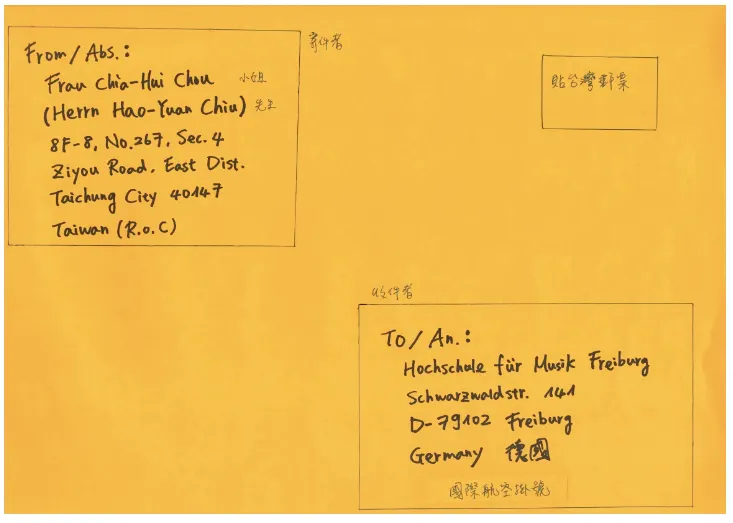 From/Abs.:
寄件者
Frau Chia-Hui Chou 小姐
(Herrn Hao-Yuan Chiu) 先生
8F-8, No.267, Sec.4
Ziyou Road, East Dist.
Taichung City 40147
Taiwan (R.O.C)
貼台灣郵票
收件者
To/An.:
Hochschule für Musik Freiburg
Schwarzwaldstr. 141
D-79102 Freiburg
Germany 德國
國際航空掛號